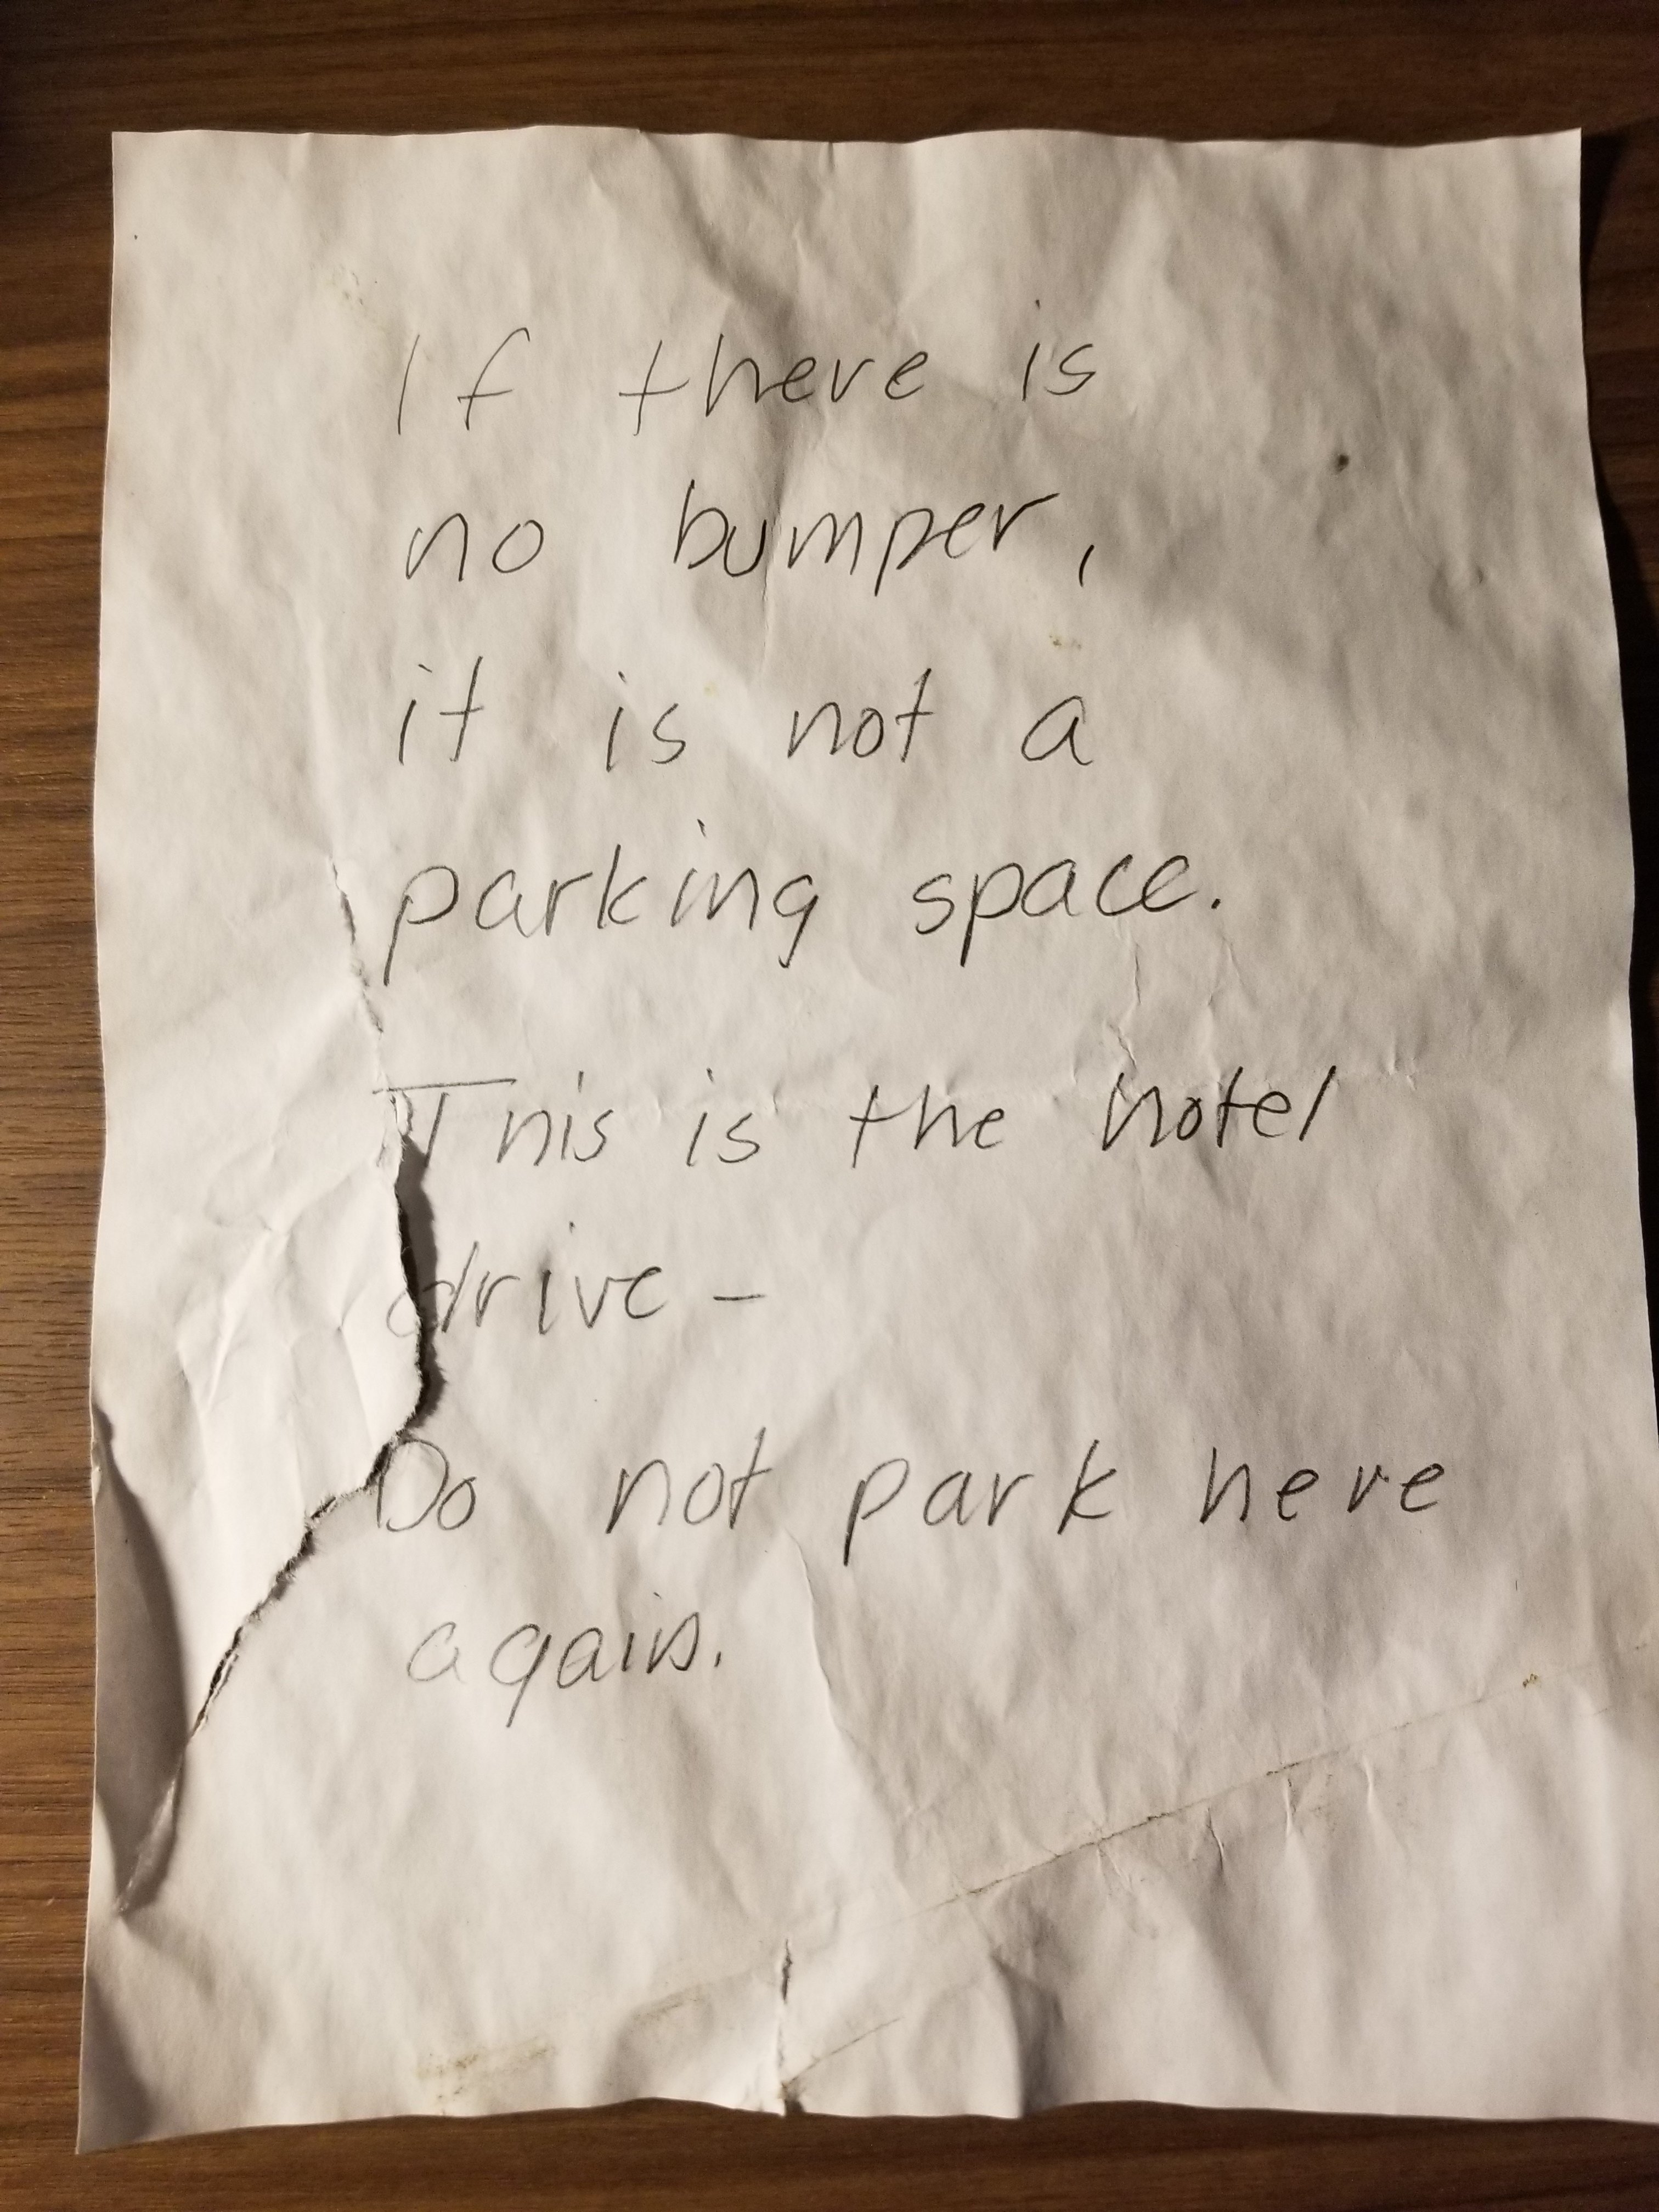 If there is
no bumper,
it is not a
parking space.
This is the hotel
drive -
Do not park here
again.